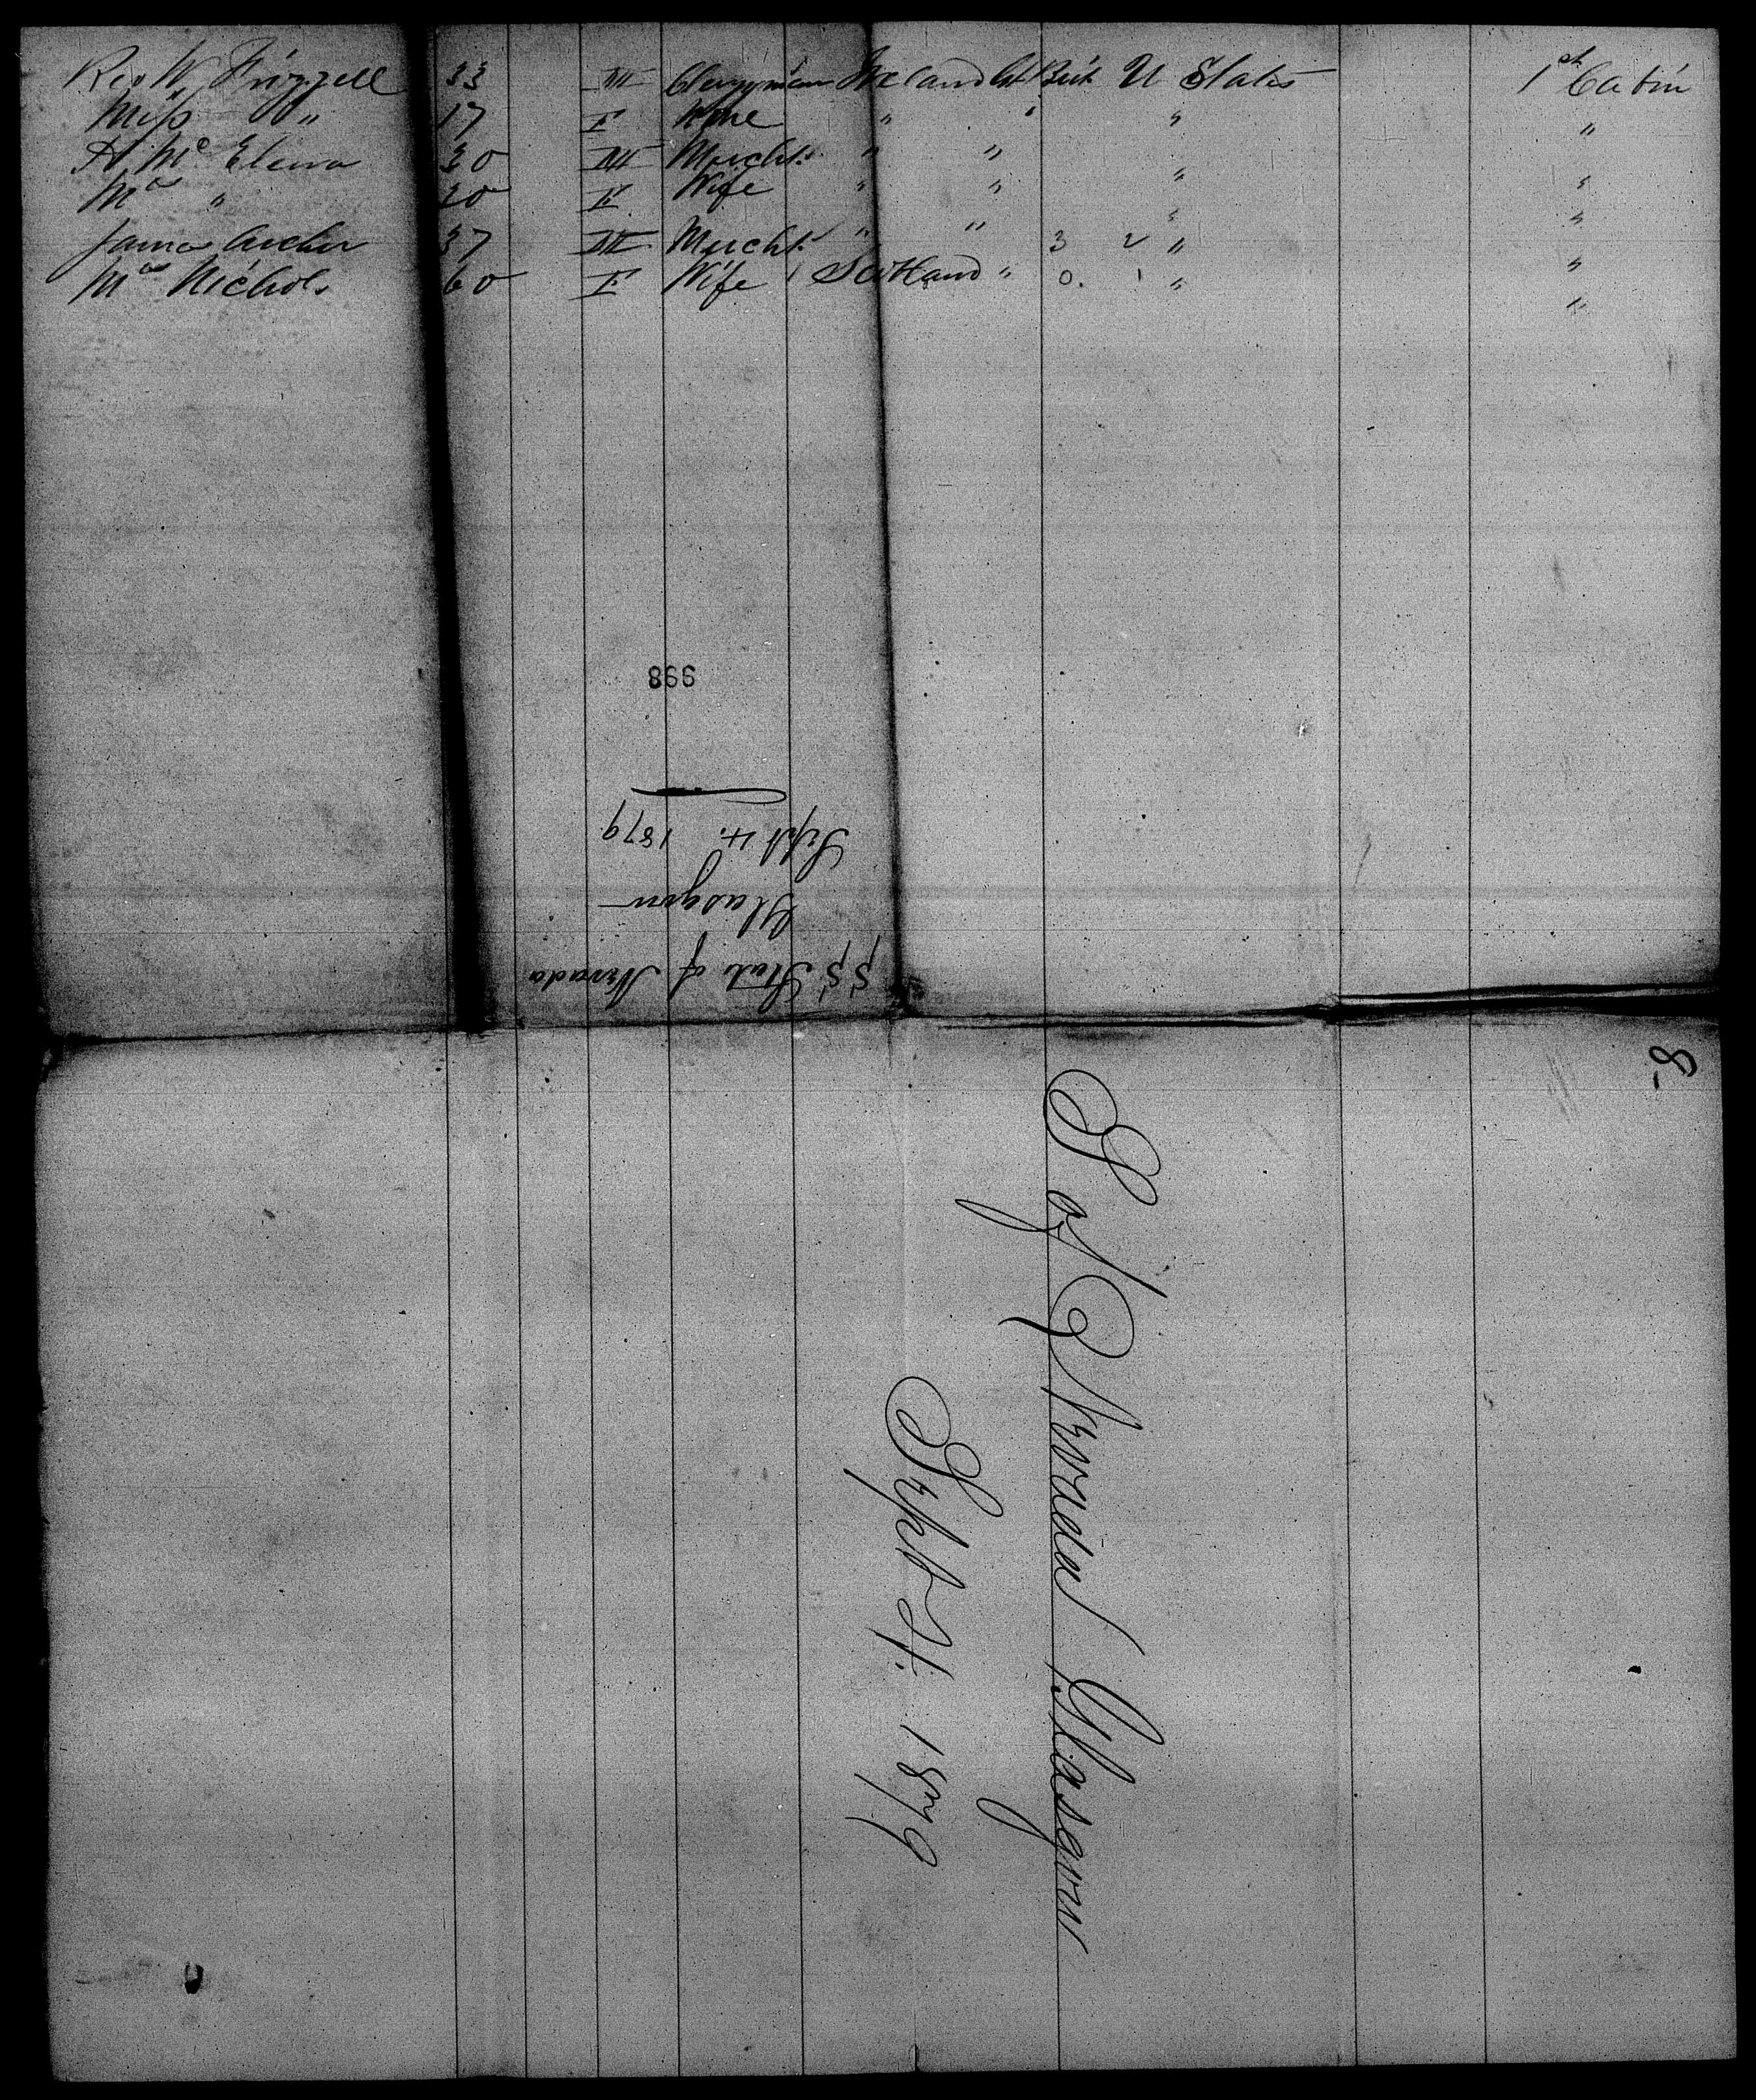 Rev W. Frizzell 33 M Clergyman Ireland Gt Brit U States 1st Cabin
Miss " 17 F None " " " "
A. Mc Elewa 30 M Mercht. " " " "
Mrs " 20 F Wife " " " "
James Archer 37 M Mercht. " " 3 2 " "
Mrs Nichols 60 F Wife Scotland " 0. 1 " "
998
SS State of Nevada
Glasgow
Sept 4. 1879
8-
S of Nevada Glasgow
Sept 4. 1879